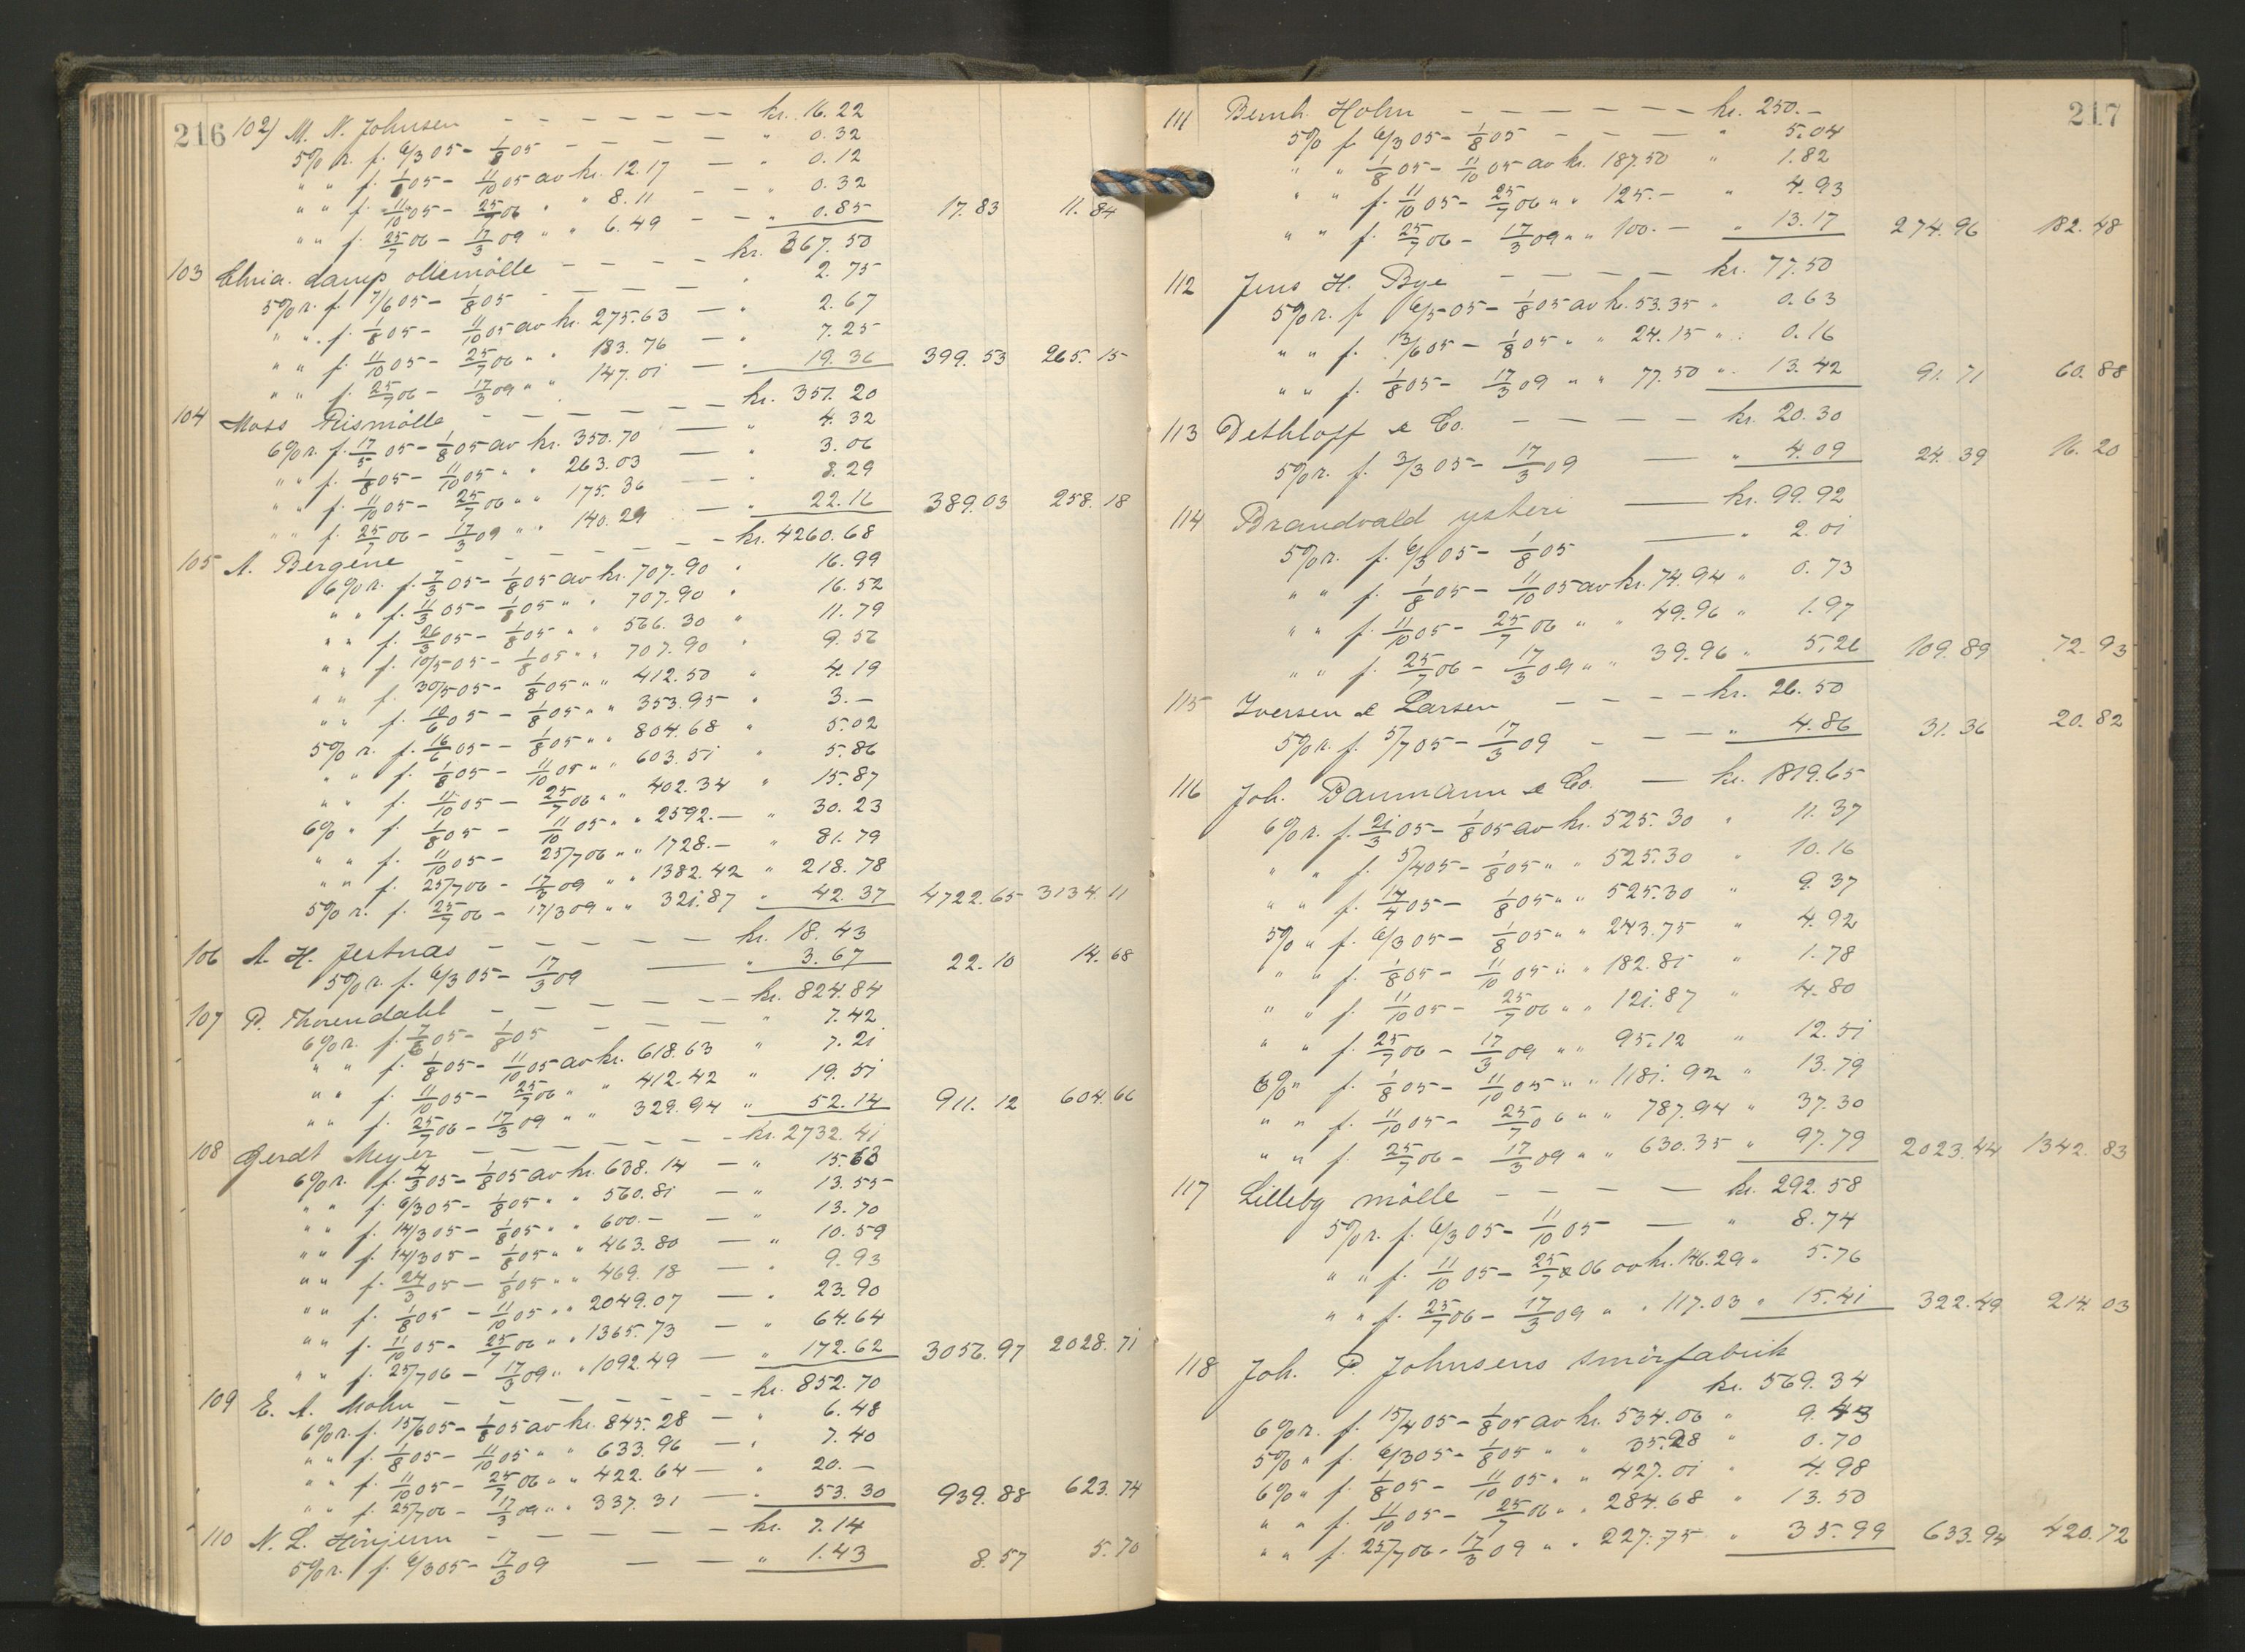 216
102) M. N. Johnsen — — — — — — kr. 16.22
5% r. f. 6/3 05 – 1/8 05 — — — — " 0.32
" " f. 1/8 05 – 11/10 05 av kr. 12.17 — " 0.12
" " f. 11/10 05 – 25/7 06 " " 8.11 — — " 0.32
" " f. 25/7 06 – 17/3 09 " " 6.49 — — " 0.85 17.83 11.84
103 Chria. damp oliemölle — — — — kr. 367.50
5% r. f. 7/6 05 – 1/8 05 — — — — " 2.75
" " f. 1/8 05 – 11/10 05 av kr. 275.63 — " 2.67
" " f. 11/10 05 – 25/7 06 " " 183.76 — " 7.25
" " f. 25/7 06 – 17/3 09 " " 147.01 — " 19.36 399.53 265.15
104 Moss Rismölle — — — — — kr. 351.20
6% r. f. 17/5 05 – 1/8 05 av kr. 350.70 — " 4.32
" " f. 1/8 05 – 11/10 05 " " 263.03 — " 3.06
" " f. 11/10 05 – 25/7 06 " " 175.36 — " 8.29
" " f. 25/7 06 – 17/3 09 " " 140.29 — " 22.16 389.03 258.18
105 A. Bergene — — — — — — kr. 4260.68
6% r. f. 7/3 05 – 1/8 05 av kr. 707.90 " 16.99
" " f. 11/3 05 – 1/8 05 " " 707.90 " 16.52
" " f. 26/3 05 – 1/8 05 " " 566.30 " 11.79
" " f. 10/5 05 – 1/8 05 " " 707.90 " 9.56
" " f. 30/5 05 – 1/8 05 " " 412.50 " 4.19
" " f. 10/6 05 – 1/8 05 " " 353.95 " 3.—
5% r. f. 16/6 05 – 1/8 05 " " 804.68 " 5.02
" " f. 1/8 05 – 11/10 05 " " 603.51 " 5.86
" " f. 11/10 05 – 25/7 06 " " 402.34 " 15.87
6% " f. 1/8 05 – 11/10 05 " " 2592.— " 30.23
" " f. 11/10 05 – 25/7 06 " " 1728.— " 81.79
" " f. 25/7 06 – 17/3 09 " " 1382.42 " 218.78
5% r. f. 25/7 06 – 17/3 09 " " 321.87 " 42.37 4722.65 3134.11
106 A. H. Jestnæs — — — — — kr. 18.43
5% r. f. 6/3 05 – 17/3 09 — " 3.67 22.10 14.68
107 P. Thorendahl — — — — — kr. 824.84
6% r. f. 7/6 05 – 1/8 05 — — — — " 7.42
" " f. 1/8 05 – 11/10 05 av kr. 618.63 " 7.21
" " f. 11/10 05 – 25/7 06 " " 412.42 " 19.51
" " f. 25/7 06 – 17/3 09 " " 329.94 " 52.14 911.12 604.66
108 Gerdt Meyer — — — — — — kr. 2732.41
6% r. f. 4/3 05 – 1/8 05 av kr. 638.14 — " 15.63
" " f. 6/3 05 – 1/8 05 " " 560.81 — " 13.55
" " f. 14/3 05 – 1/8 05 " " 600.— — " 13.70
" " f. 14/3 05 – 1/8 05 " " 463.80 — " 10.59
" " f. 24/3 05 – 1/8 05 " " 469.18 — " 9.93
" " f. 1/8 05 – 11/10 05 " " 2049.07 — " 23.90
" " f. 11/10 05 – 25/7 06 " " 1365.73 — " 64.64
" " f. 25/7 06 – 17/3 09 " " 1092.49 — " 172.62 3056.97 2028.71
109 E. A. Mohn — — — — — — kr. 852.70
6% r. f. 15/6 05 – 1/8 05 av kr. 845.28 — " 6.48
" " f. 1/8 05 – 11/10 05 " " 633.96 — " 7.40
" " f. 11/10 05 – 25/7 06 " " 422.64 — " 20.—
" " f. 25/7 06 – 17/3 09 " " 337.31 — " 53.30 939.88 623.74
110 N. L. — — — — — kr. 7.14
5% r. f. 6/3 05 – 17/3 09 — — " 1.43 8.57 5.70
217
111 Bernh. Holm — — — — — — kr. 250.—
5% f. 6/3 05 – 1/8 05 — — — " 5.04
" " f. 1/8 05 – 11/10 05 av kr. 187.50 " 1.82
" " f. 11/10 05 – 25/7 06 " " 125.— " 4.93
" " f. 25/7 06 – 17/3 09 " " 100.— " 13.17 274.96 182.48
112 Jens H. Bye — — — — kr. 77.50
5% r. f. 6/5 05 – 1/8 05 av kr. 53.35 " 0.63
" " f. 13/6 05 – 1/8 05 " " 24.15 " 0.16
" " f. 1/8 05 – 17/3 09 " " 77.50 " 13.42 91.71 60.88
113 Dethloff & Co. — — — — kr. 20.30
5% r. f. 3/3 05 – 17/3 09 — " 4.09 24.39 16.20
114 Brandvald ysteri — kr. 99.92
5% r. f. 6/3 05 – 1/8 05 — " 2.01
" " f. 1/8 05 – 11/10 05 av kr. 74.94 " 0.73
" " f. 11/10 05 – 25/7 06 " " 49.96 " 1.97
" " f. 25/7 06 – 17/3 09 " " 39.96 " 5.26 109.89 72.93
115 Iversen & Larsen — — — kr. 26.50
5% r. f. 5/7 05 – 17/3 09 — — — " 4.86 31.36 20.82
116 Joh. Baumann & Co. — kr. 1819.65
6% r. f. 21/3 05 – 1/8 05 av kr. 525.30 " 11.37
" " f. 5/4 05 – 1/8 05 " " 525.30 " 10.16
" " f. 14/4 05 – 1/8 05 " " 525.30 " 9.37
5% " f. 6/3 05 – 1/8 05 " " 243.75 " 4.92
" " f. 1/8 05 – 11/10 05 " " 182.81 " 1.78
" " f. 11/10 05 – 25/7 06 " " 121.87 " 4.80
" " f. 25/7 06 – 17/3 09 " " 95.12 " 12.51
6% " f. 1/8 05 – 11/10 05 " " 1181.92 " 13.79
" " f. 11/10 05 – 25/7 06 " " 787.94 " 37.30
" " f. 25/7 06 – 17/3 09 " " 630.35 " 97.79 2023.44 1342.83
117 Lilleby mölle — — — — kr. 292.58
5% r. f. 6/3 05 – 11/10 05 — " 8.74
" " f. 11/10 05 – 25/7 06 av kr. 146.29 " 5.76
" " f. 25/7 06 – 17/3 09 " " 117.03 " 15.41 322.49 214.03
118 Joh. P. Johnsens smörfabrik
kr. 569.34
6% r. f. 15/4 05 – 1/8 05 av kr. 534.06 " 9.43
5% " f. 6/3 05 – 1/8 05 " " 35.28 " 0.70
6% " f. 1/8 05 – 11/10 05 " " 427.01 " 4.98
" " f. 11/10 05 – 25/7 06 " " 284.68 " 13.50
" " f. 25/7 06 – 17/3 09 " " 227.75 " 35.99 633.94 420.72